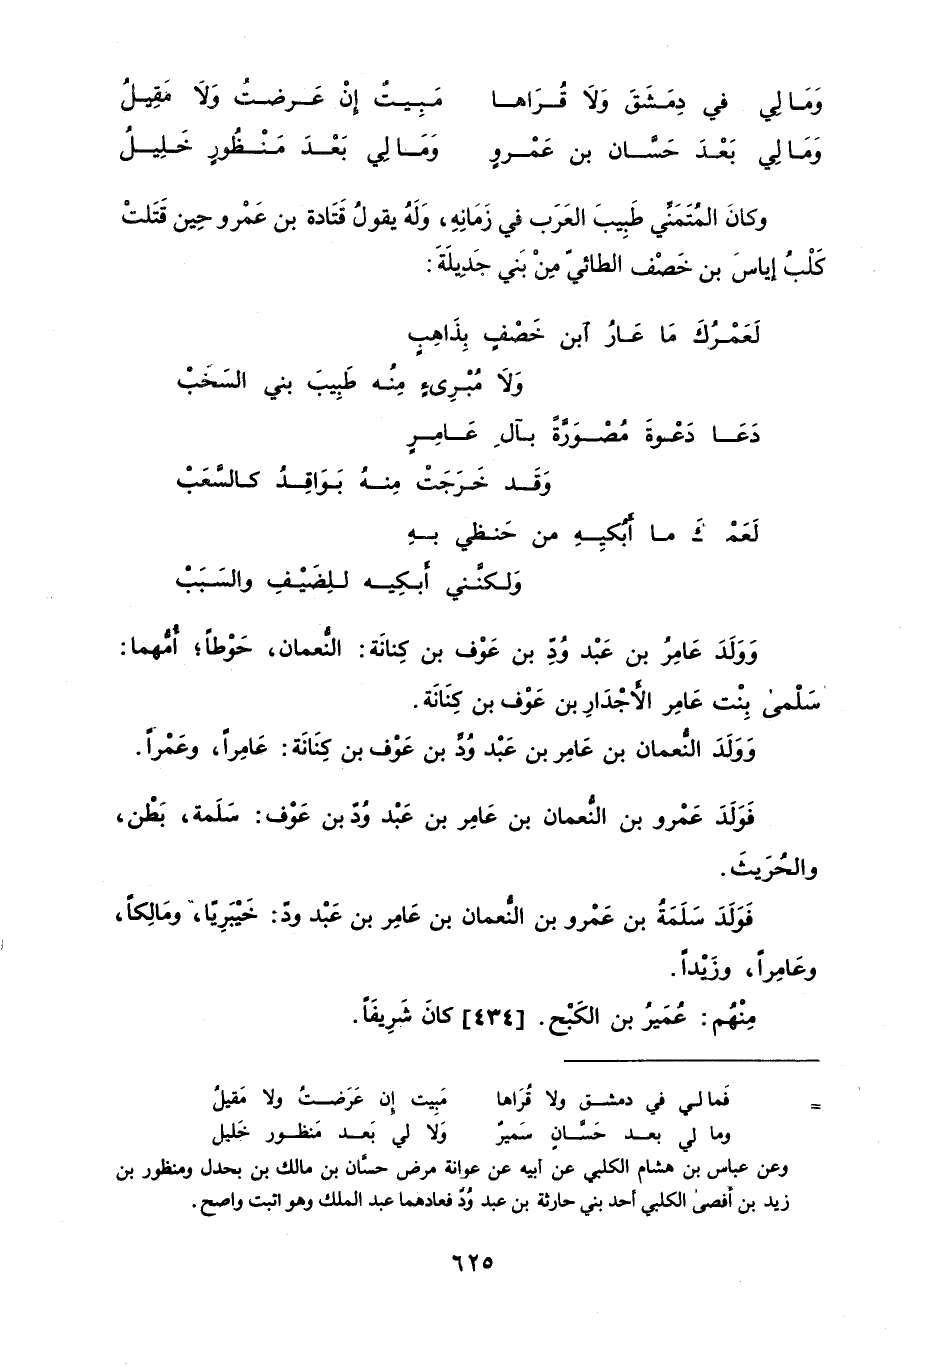 وَمَـا لِي في دِمَـشَقَ وَلَا قُـرَاهـا مَـبِـيتُ إِنْ عَـرضـتُ وَلَا مَقِيـلُ
وَمَـا لِي بَعْـدَ حَسَّـان بن عَمْـرو وَمَـا لِي بَعْـدَ مَنْـظُورٍ خَـلِيـلُ
وكانَ المُتَمَنِّي طَبِيبَ العَرَب في زَمَانِهِ، وَلَهُ يقولُ قَتَادة بن عَمْرو حِين قَتَلتْ
كَلْبُ إياسَ بن خَصْف الطائيّ مِنْ بَني جَدِيلَةَ:
لَعَمْـرُكَ مَا عَـارُ آبن خَصْفٍ بِذَاهِبٍ
وَلَا مُبْـرِىءٍ مِنُـه طَبِيبَ بني السَخَبْ
دَعَـا دَعْـوةً مُصْـوَرَّةً بـآلِ عَـامِـرٍ
وَقَـد خَـرَجَتْ مِنـهُ بَـوَاقِـدُ كـالشَّعَبْ
لَعَمْ كَ مـا أَبْكيِـهِ من حَنـظي بـهِ
وَلـكنَّـني أَبـكِيـه للِضَيْـفِ والسَبَبْ
وَوَلَدَ عَامِرُ بن عَبْد وُدِّ بن عَوْف بن كِنَانَة: النُّعمان، حَوْطاً؛ أُمُّهما:
سَلْمىٰ بِنْت عَامِر الأَجْدَارِ بن عَوْف بن كِنَانَة.
وَوَلَدَ النُّعمان بن عَامِر بن عَبْد وُدّ بن عَوْف بن كِنَانَة: عَامِراً، وعَمْراً.
فَوَلَدَ عَمْرو بن النُّعمان بن عَامِر بن عَبْد وُدّ بن عَوْف: سَلَمة، بَطْن،
والحُرَيثَ.
فَوَلَدَ سَلَمَةُ بن عَمْرو بن النُّعمان بن عَامِر بن عَبْد ودّ: خَيْبَرِيّا، ومَالِكاً،
وعَامِراً، وزَيْداً.
مِنْهُم: عُمَيرُ بن الكَبْح. [٤٣٤] كانَ شَرِيفَاً.
= فَما لـي في دمشـق ولا قُرَاها مَبِيت إن عَرَضـتُ ولا مَقيلُ
وما لي بعـد حَسَّـانٍ سَميرٌ وَلا لي بَعـد مَنظـور خَليل
وعن عباس بن هشام الكلبي عن أبيه عن عوانة مرض حسَّان بن مالك بن بحدل ومنظور بن
زيد بن أفصىٰ الكلبي أحد بني حارثة بن عبد وُدّ فعادهما عبد الملك وهو اثبت واصح.
٦٢٥